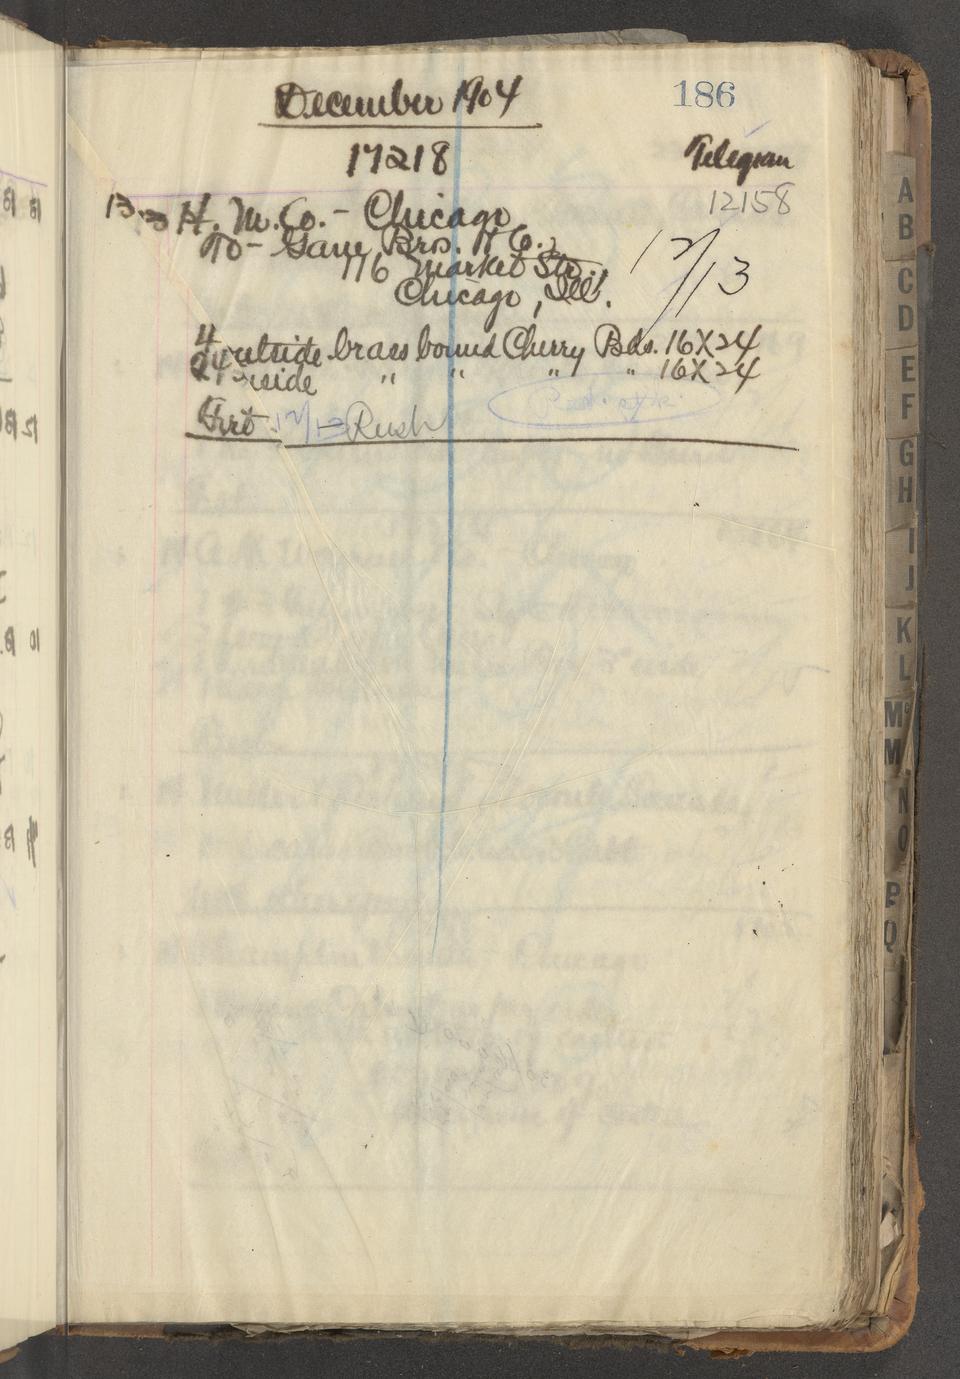 December 1904
186
17218
Telegram
12158
13 H. M. Co. - Chicago
To - Gane Bros. & Co.
116 Market Str.
Chicago, Ill.
12/13
4 outside brass bound Cherry Bds. 16X24
24 inside " " " " 16X24
Frt. 12/13 - Rush
A
B
C
D
E
F
G
H
I
J
K
L
Mc
M
N
O
P
Q